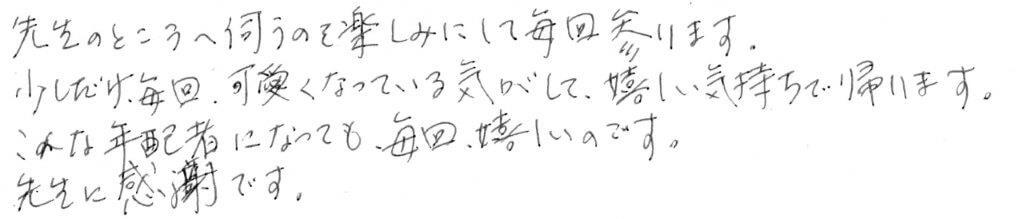 先生のところへ伺うのを楽しみにして毎回参ります。
少しだけ、毎回、可愛くなっている気がして、嬉しい気持ちで帰ります。
こんな年配者になっても、毎回、嬉しいのです。
先生に感謝です。